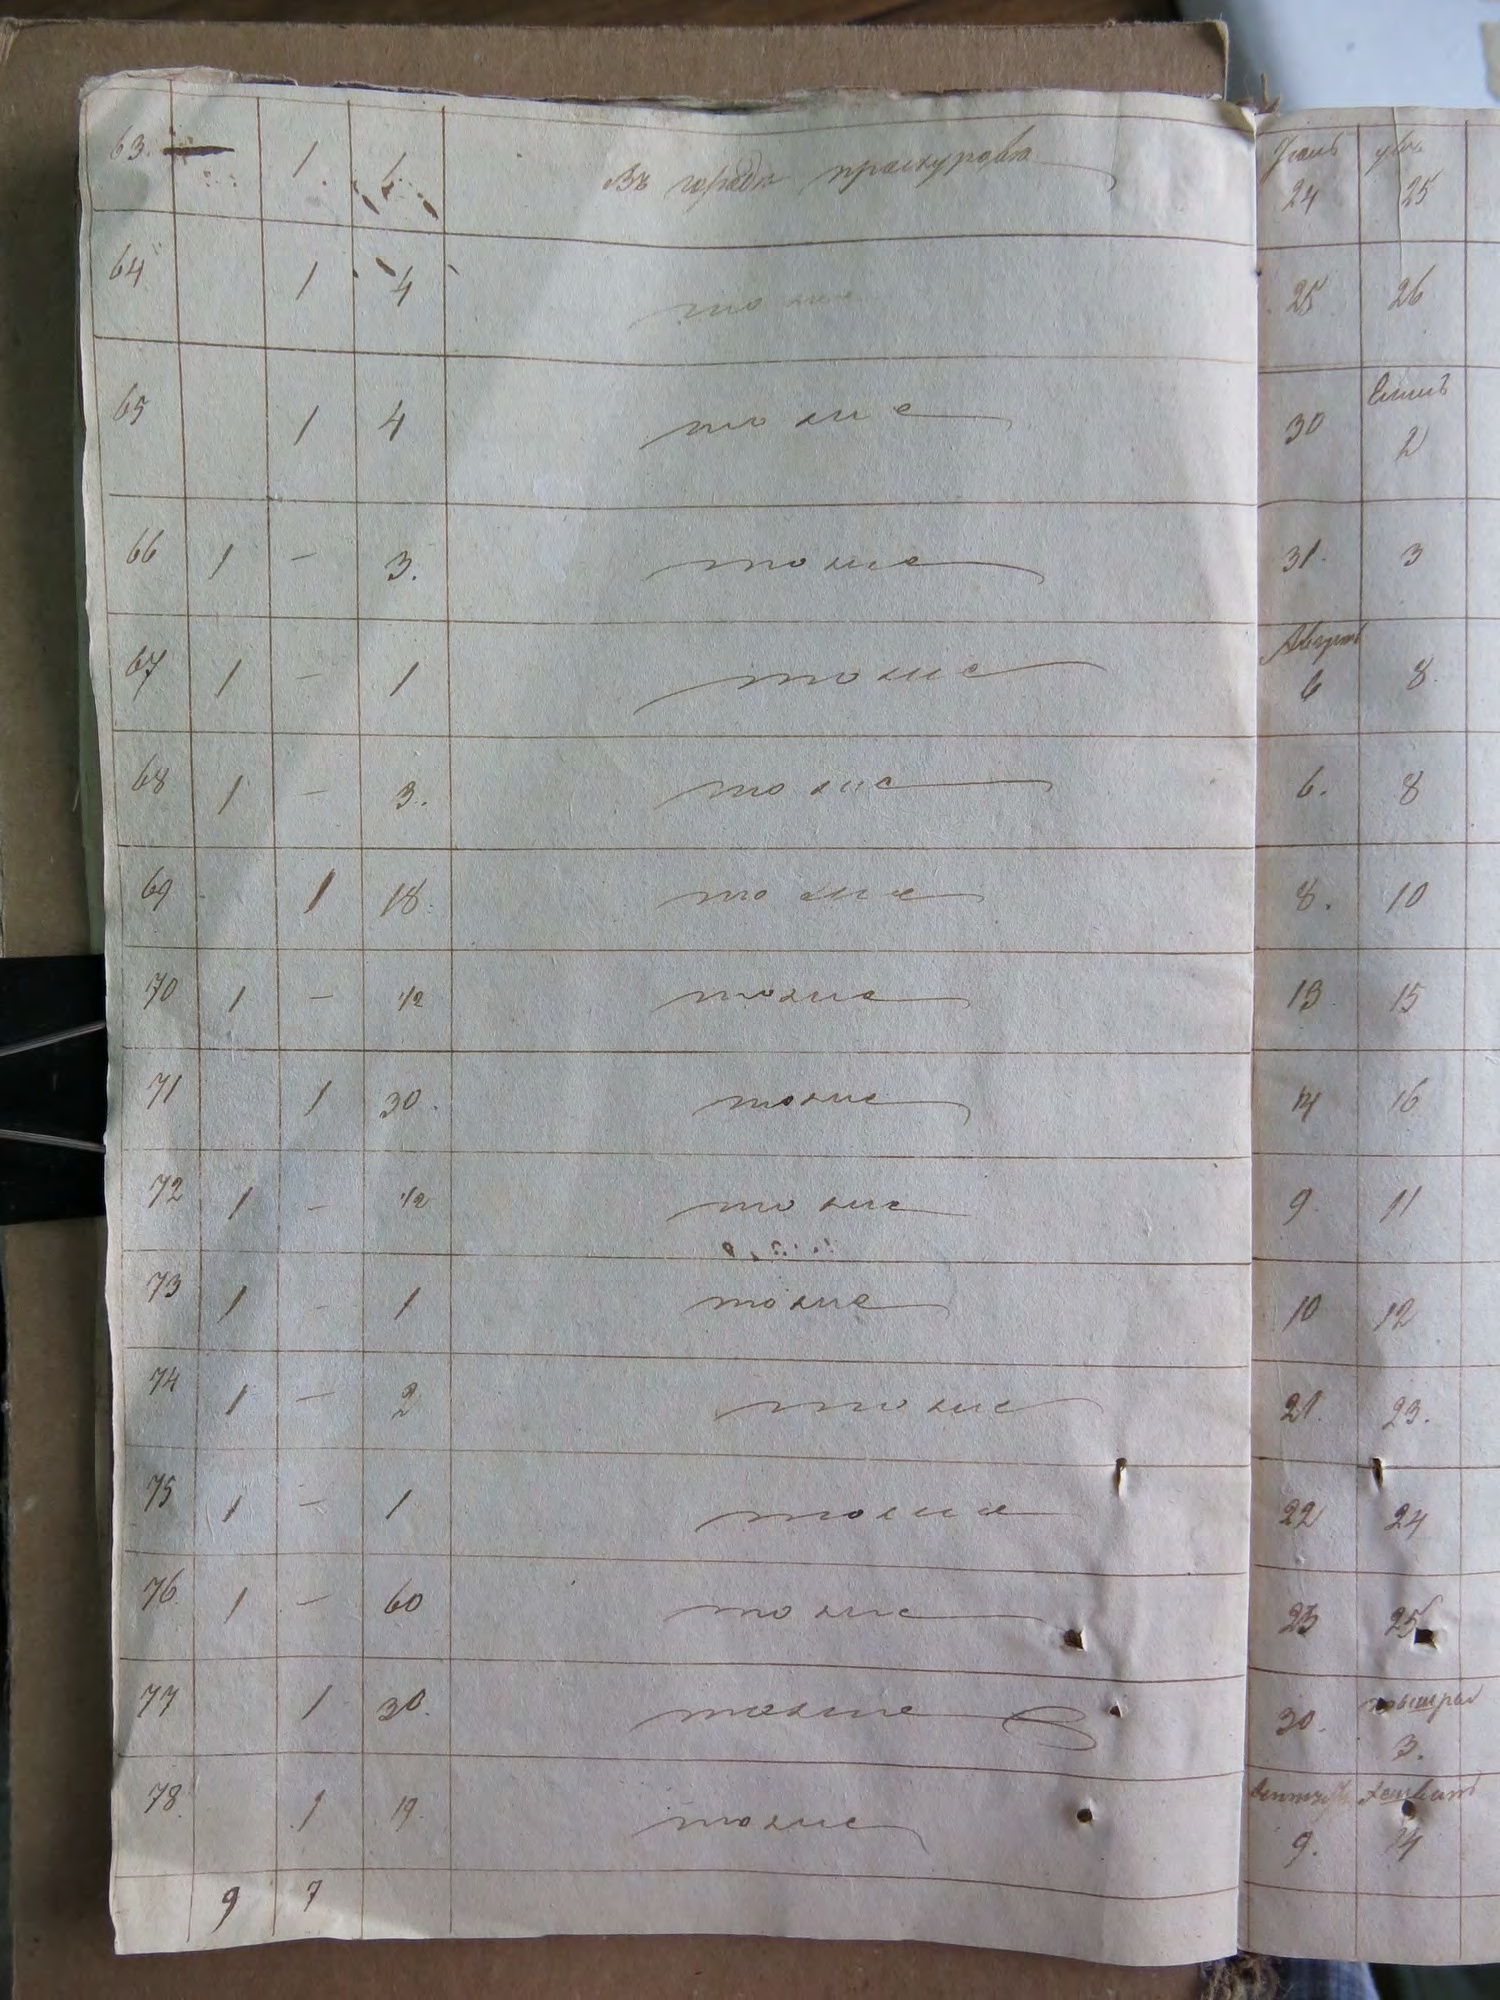 63. 1 1. Въ городѣ проскуровѣ 24 25
64 1 4 тоже 25 26
65 1 4 тоже 30 2
66 1 – 3. тоже 31. 3
67 1 – 1 тоже Августъ 6 8.
68 1 – 3. тоже 6. 8
69 1 18. тоже 8. 10
70 1 – 1/2 тоже 13 15
71 1 30. тоже 14 16
72 1 – 1/2 тоже 9. 11
73 1 – 1 тоже 10 12
74 1 – 2 тоже 21. 23.
75 1 – 1 тоже 22 24
76. 1 – 60 тоже 23 25
77 1 30. тоже 30. 3.
78. 1 19. тоже 9. 14
9 7